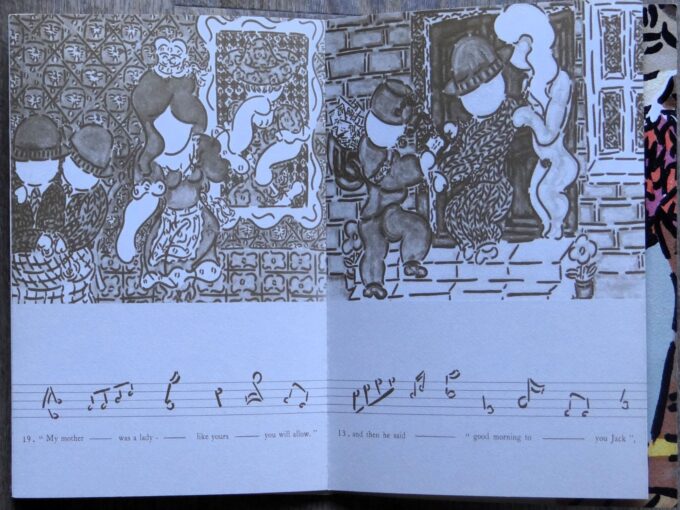 19. " My mother —— was a lady - —— like yours —— you will allow. "
13. and then he said —— " good morning to —— you Jack ",